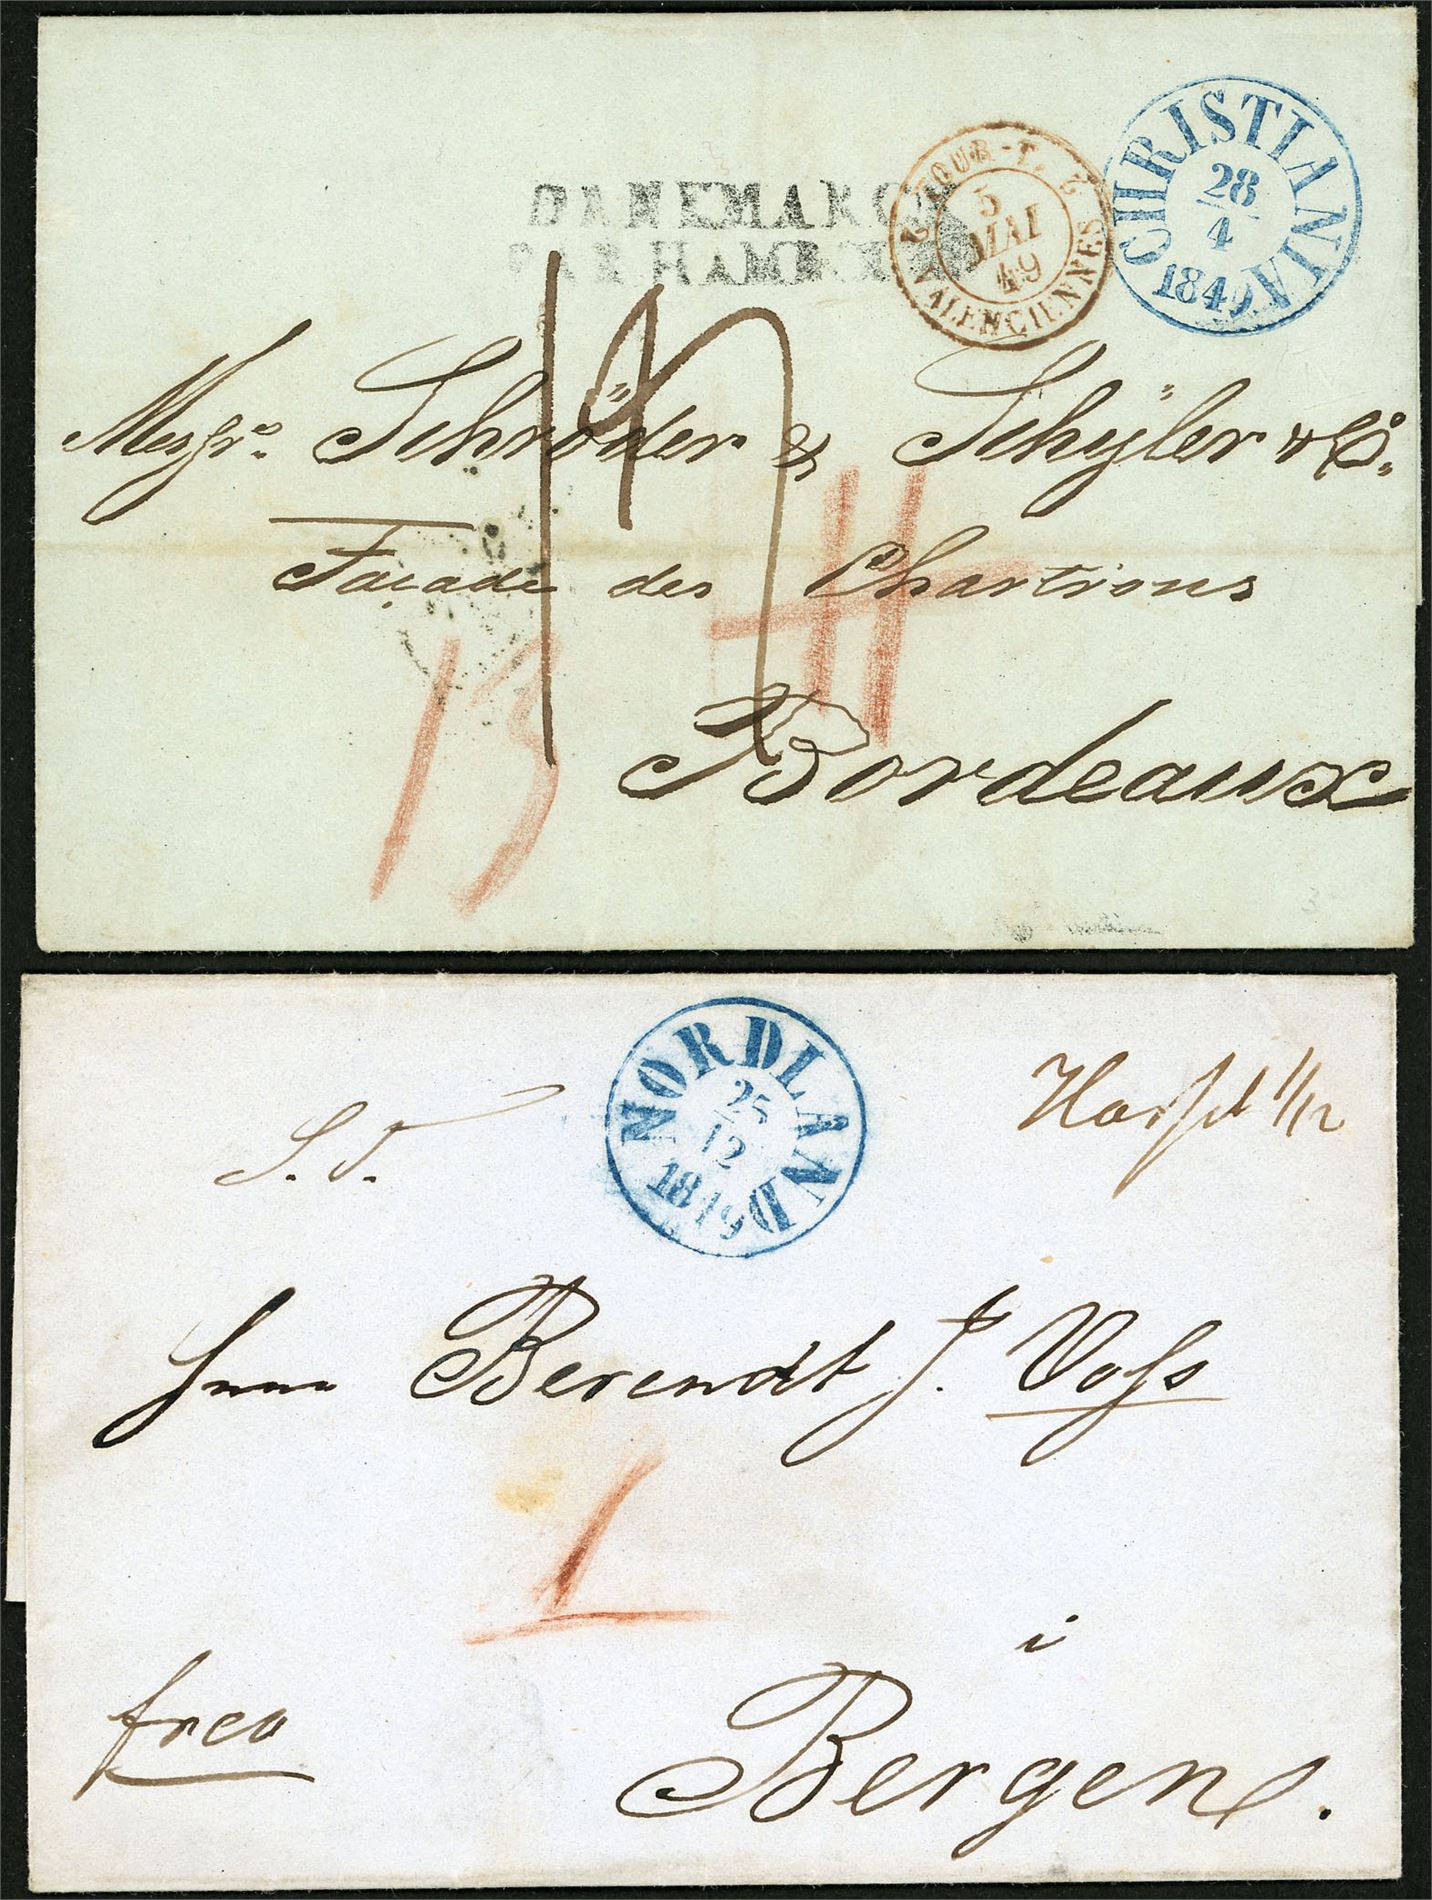 DANEMARCK
PAR HAMBOURG
2 TOUR-T. 2
5
MAI
49
VALENCIENNES
CHRISTIANIA
28
4
1849
Messrs. Schröder & Schÿler & Co.
Façade des Chartrons
13
Bordeaux
NORDLAND
25
12
1849
S. T.
1/12
Herr Berendt J. Voss
frco
i
Bergen.